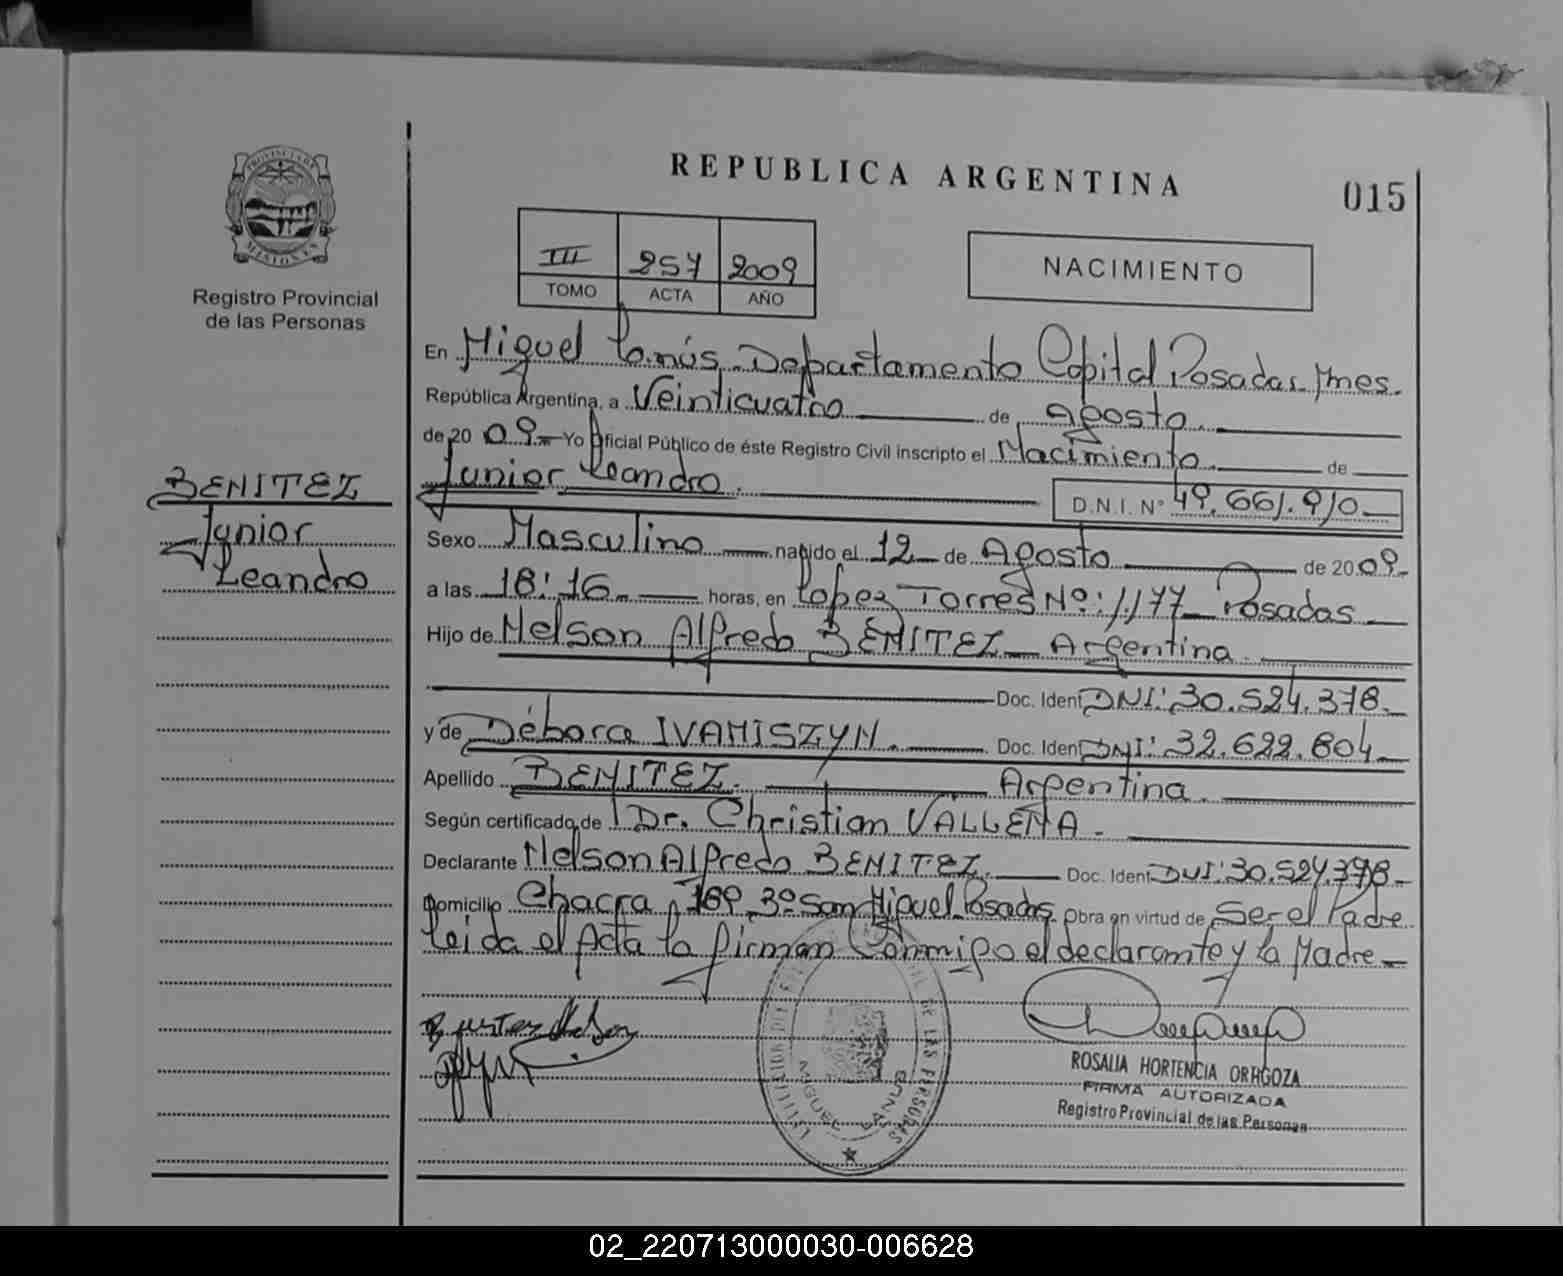 REPUBLICA ARGENTINA
015
III 257 2009
TOMO ACTA AÑO
NACIMIENTO
PROVINCIA DE
MISIONES
Registro Provincial
de las Personas
BENITEZ
Junior
Leandro
En Miguel Lanús. Departamento Capital Posadas. Mnes.
República Argentina, a Veinticuatro de Agosto.
de 20 09.- Yo Oficial Público de éste Registro Civil inscripto el Nacimiento. de
Junior Leandro. D.N.I. N° 49.661.910.-
Sexo Masculino nacido el 12 de Agosto de 20 09.-
a las 18:16. horas, en Lopez Torres Nº: 1.177 Posadas
Hijo de Nelson Alfredo BENITEZ Argentina.
Doc. Ident DNI: 30.524.378.-
y de Débora IVANISZYN. Doc. Ident DNI: 32.622.804
Apellido BENITEZ. Argentina.
Según certificado de Dr. Christian VALLENA.
Declarante Nelson Alfredo BENITEZ. Doc. Ident DNI: 30.524.378.-
Domicilio Chacra 169 3º San Miguel Posadas. Obra en virtud de Ser el Padre
Leida el Acta la firman Conmigo el declarante y la Madre
MIGUEL LANUS
ROSALIA HORTENCIA ORAGOZA
FIRMA AUTORIZADA
Registro Provincial de las Personas
02_220713000030-006628